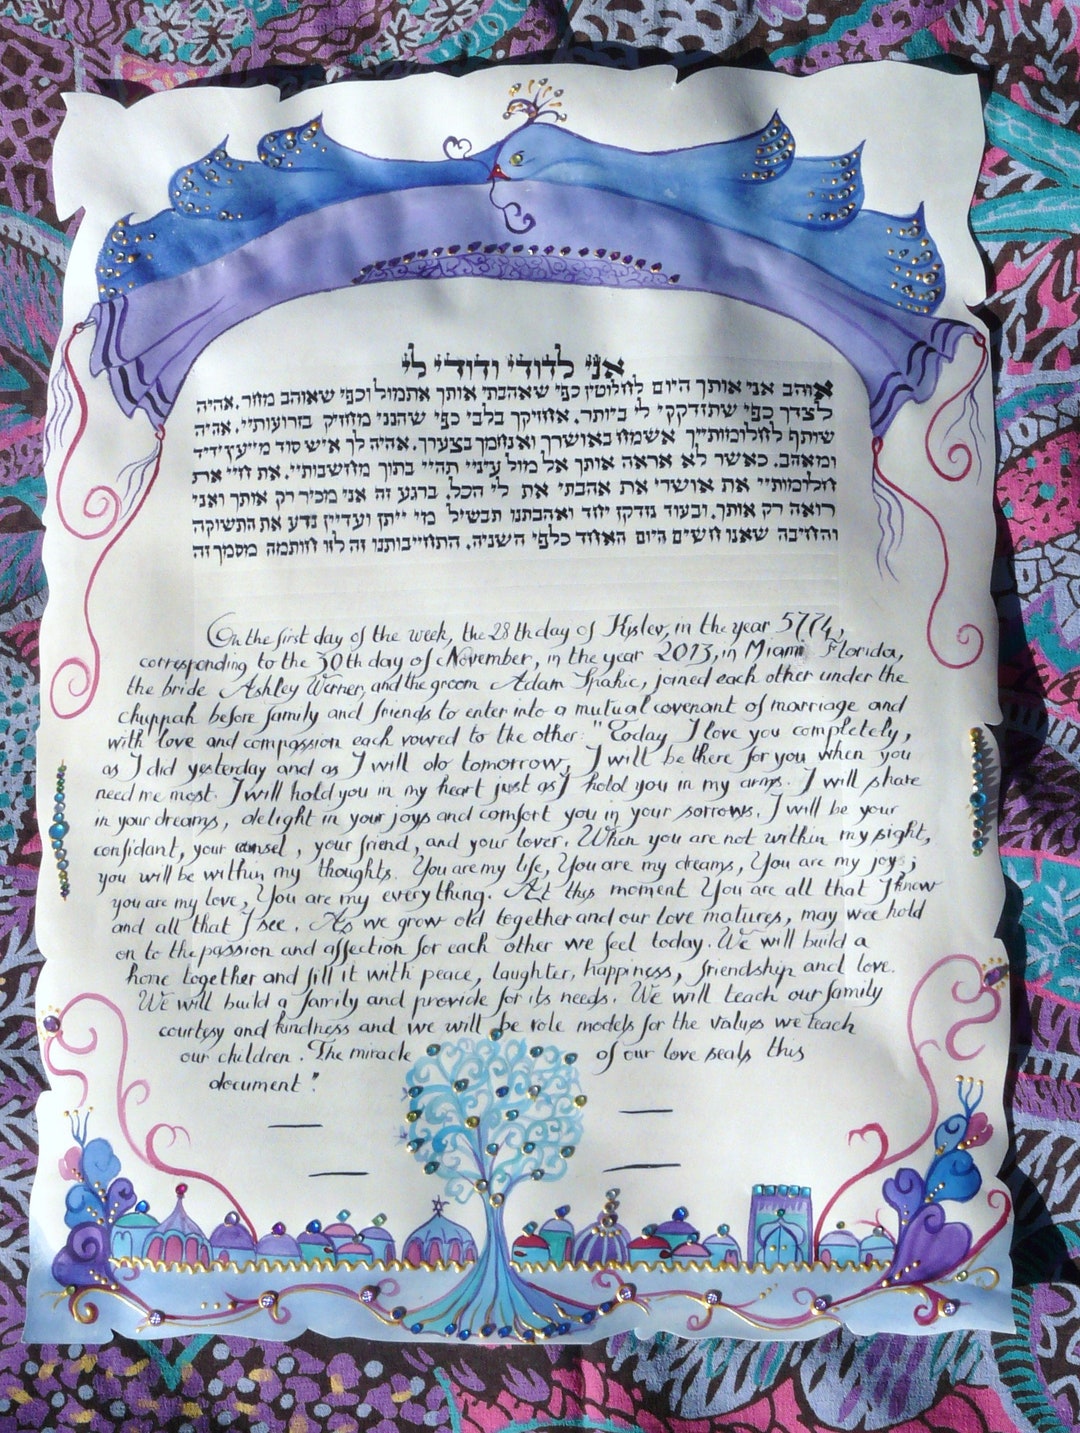 אני לדודי ודודי לי
אוהב אני אותך היום לחלוטין כפי שאהבתי אותך אתמול וכפי שאוהב מחר. אהיה
לצדך כפי שתזדקקי לי ביותר. אחזיקך בלבי כפי שהנני מחזיק בזרועותיי. אהיה
שותף לחלומותייך אשמח באושרך ואנחמך בצערך. אהיה לך איש סוד מייעץ ידיד
ומאהב. כאשר לא אראה אותך אל מול עיניי תהיי בתוך מחשבותיי. את חיי את
חלומותיי את אושרי את אהבתי את לי הכל. ברגע זה אני מכיר רק אותך ואני
רואה רק אותך. ובעוד נזדקן יחד ואהבתנו תבשיל מי ייתן ועדיין נדע את התשוקה
והחיבה שאנו חשים היום האחד כלפי השניה. התחייבותנו זה לזו חותמה מסמך זה
On the first day of the week, the 28th day of Kislev, in the year 5774,
corresponding to the 30th day of November, in the year 2013, in Miami Florida,
the bride Ashley Werner, and the groom Adam Spahic, joined each other under the
chuppah before family and friends to enter into a mutual covenant of marriage and
with love and compassion each vowed to the other: "Today I love you completely,
as I did yesterday and as I will do tomorrow, I will be there for you when you
need me most. I will hold you in my heart just as I hold you in my arms. I will share
in your dreams, delight in your joys and comfort you in your sorrows. I will be your
confidant, your counsel, your friend, and your lover. When you are not within my sight,
you will be within my thoughts. You are my life, You are my dreams, You are my joys;
you are my love, You are my everything. At this moment You are all that I know
and all that I see. As we grow old together and our love matures, may wee hold
on to the passion and affection for each other we feel today. We will build a
home together and fill it with peace, laughter, happiness, friendship and love.
We will build a family and provide for its needs. We will teach our family
courtesy and kindness and we will be role models for the values we teach
our children. The miracle of our love seals this
document."